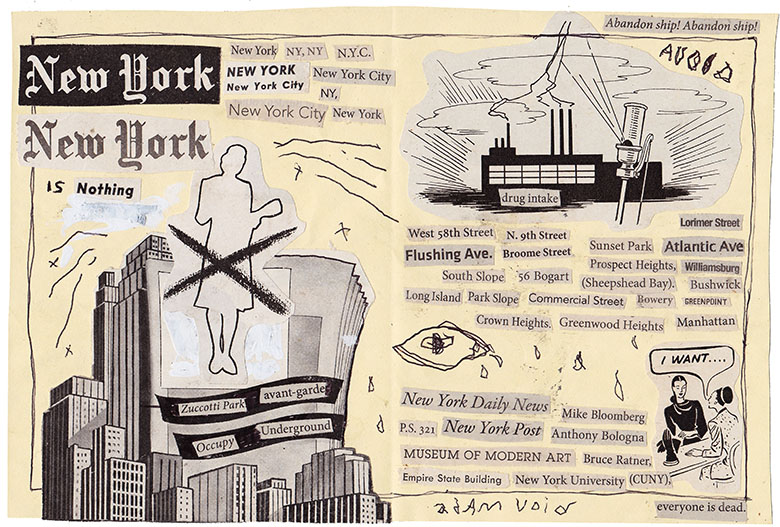 New York
New York
IS Nothing
New York NY, NY N.Y.C.
NEW YORK
New York City
New York City
NY,
New York City New York
Zuccotti Park avant-garde
Occupy Underground
Abandon ship! Abandon ship!
AVOID
drug intake
Lorimer Street
West 58th Street N. 9th Street
Sunset Park Atlantic Ave
Flushing Ave. Broome Street
Prospect Heights, Williamsburg
South Slope 56 Bogart (Sheepshead Bay). Bushwick
Long Island Park Slope Commercial Street Bowery GREENPOINT
Crown Heights. Greenwood Heights Manhattan
I WANT....
New York Daily News Mike Bloomberg
P.S. 321 New York Post Anthony Bologna
MUSEUM OF MODERN ART Bruce Ratner,
Empire State Building New York University (CUNY),
ADAM VOID
everyone is dead.